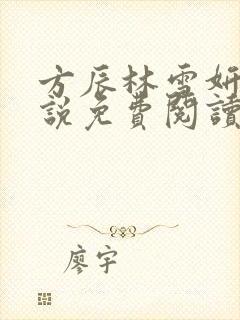 方辰林雪妍
說免費閱讀
廖宇